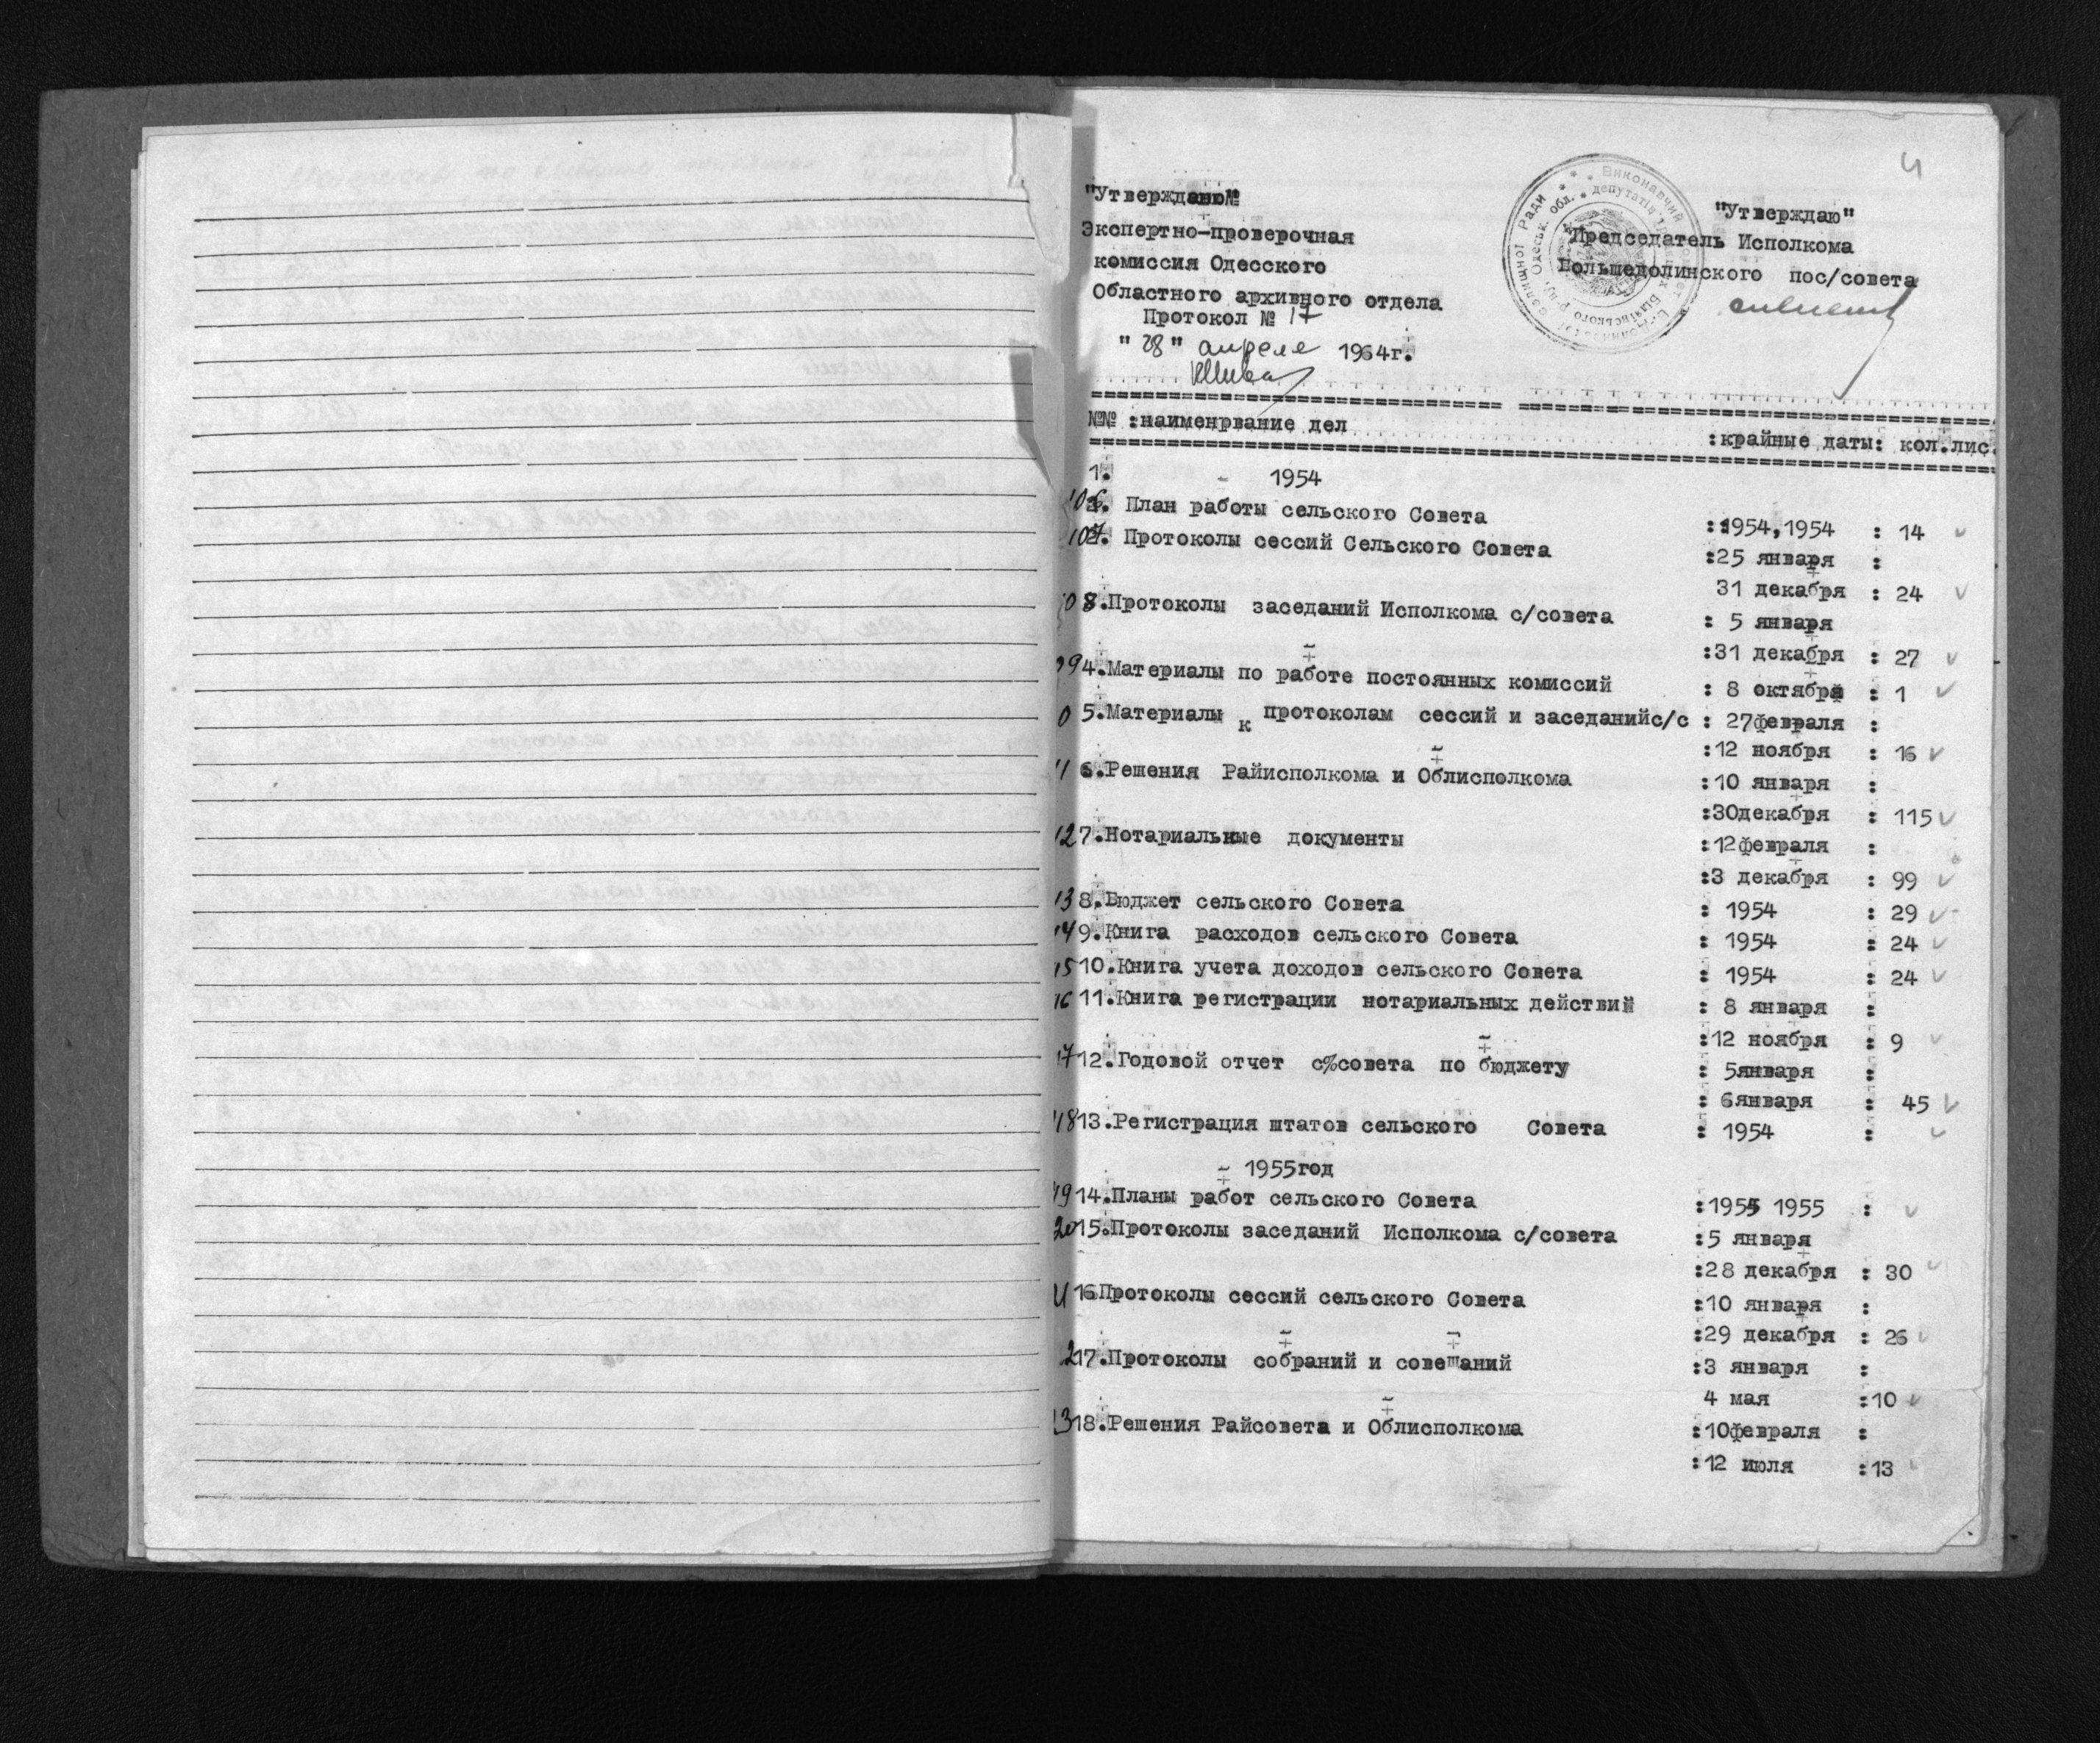 4
"Утверждаю"
Экспертно-проверочная
комиссия Одесского
Областного архивного отдела
Протокол № 17
"28" апреля 1964г.
"Утверждаю"
Председатель Исполкома
Большедолинского пос/совета
№№ :наименрвание дел :крайные даты: кол.лис.
1. 1954
106. План работы сельского Совета :1954,1954 : 14
107. Протоколы сессий Сельского Совета :25 января :
31 декабря : 24
08.Протоколы заседаний Исполкома с/совета : 5 января
:31 декабря : 27
09 4.Материалы по работе постоянных комиссий : 8 октября : 1
0 5.Материалы к протоколам сессий и заседанийс/с : 27февраля :
:12 ноября : 16
11 6.Решения Райисполкома и Облисполкома :10 января :
:30декабря : 115
12 7.Нотариальные документы :12февраля :
:3 декабря : 99
13 8.Бюджет сельского Совета : 1954 : 29
14 9.Книга расходов сельского Совета : 1954 : 24
15 10.Книга учета доходов сельского Совета : 1954 : 24
16 11.Книга регистрации нотариальных действий : 8 января :
:12 ноября : 9
17 12.Годовой отчет с%совета по бюджету : 5января :
: 6января : 45
18 13.Регистрация штатов сельского Совета : 1954 :
1955год
19 14.Планы работ сельского Совета :1955 1955 :
20 15.Протоколы заседаний Исполкома с/совета :5 января
:28 декабря : 30
21 16Протоколы сессий сельского Совета :10 января :
:29 декабря : 26
2 17.Протоколы собраний и совещаний :3 января :
4 мая :10
23 18.Решения Райсовета и Облисполкома :10февраля :
:12 июля :13